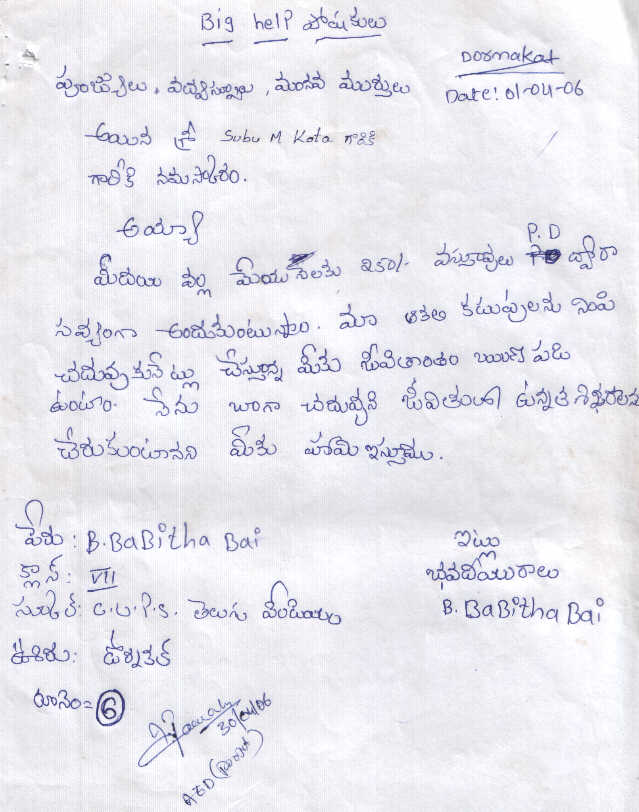 Big help పోషకులు
Dornakal
Date: 01-04-06
పుంజ్యులు, విద్వన్మూర్తులు, మానవ ముర్తులు
అయిన శ్రీ Subu M Kota గారికి
గారికి నమస్కారం.
అయ్యా
P. D
మీదయ వల్ల మేము నెలకు 250/- వస్తూవులు ద్వారా
సవ్యంగా అందుకుంటున్నాం. మా ఆకలి కడుపులను నింపి
చదువుకునేట్లు చేస్తూన్న మీకు జీవితాంతం ఋణ పడి
ఉంటాం. నేను బాగా చదువుకుని జీవితంలో ఉన్నత శిఖరాలను
చేరుకుంటానని మీకు హామి ఇస్తూన్నాము.
పేరు: B. BaBitha Bai
క్లాస్: VII
స్కూల్: C.U.P.S. తెలుగు మీడియం
ఊరు: డోర్నకల్
రూనెం= 6
ఇట్లు
భవదీయురాలు
B. BaBitha Bai
30/04/06